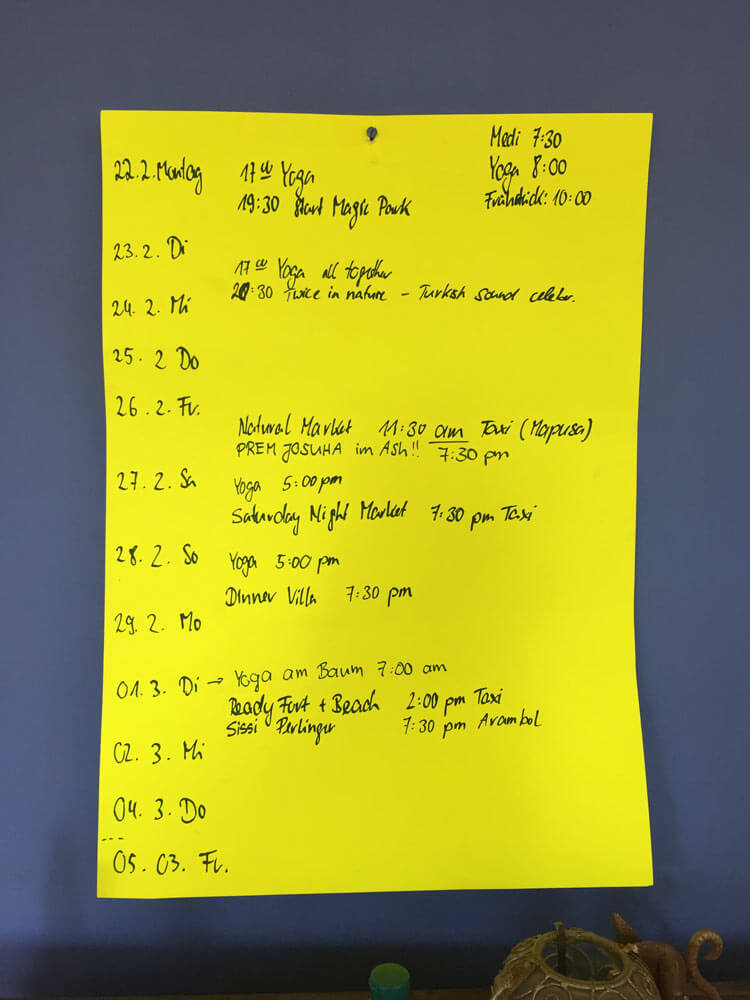 Medi 7:30
22.2. Montag 17 00 Yoga Yoga 8:00
19:30 Start Magic Park Frühstück: 10:00
23.2. Di
17 00 Yoga all together
20:30 Twice in nature - Turkish sound celebr.
24.2. Mi
25. 2 Do
26.2. Fr.
Natural Market 11:30 am Taxi (Mapusa)
PREM JOSUHA im Ash!! 7:30 pm
27.2. Sa Yoga 5:00 pm
Saturday Night Market 7:30 pm Taxi
28.2. So Yoga 5:00 pm
Dinner Villa 7:30 pm
29.2. Mo
01.3. Di → Yoga am Baum 7:00 am
Fort + Beach 2:00 pm Taxi
Sissi Perlinger 7:30 pm Arambol
02. 3. Mi
04. 3. Do
---
05. 03. Fr.